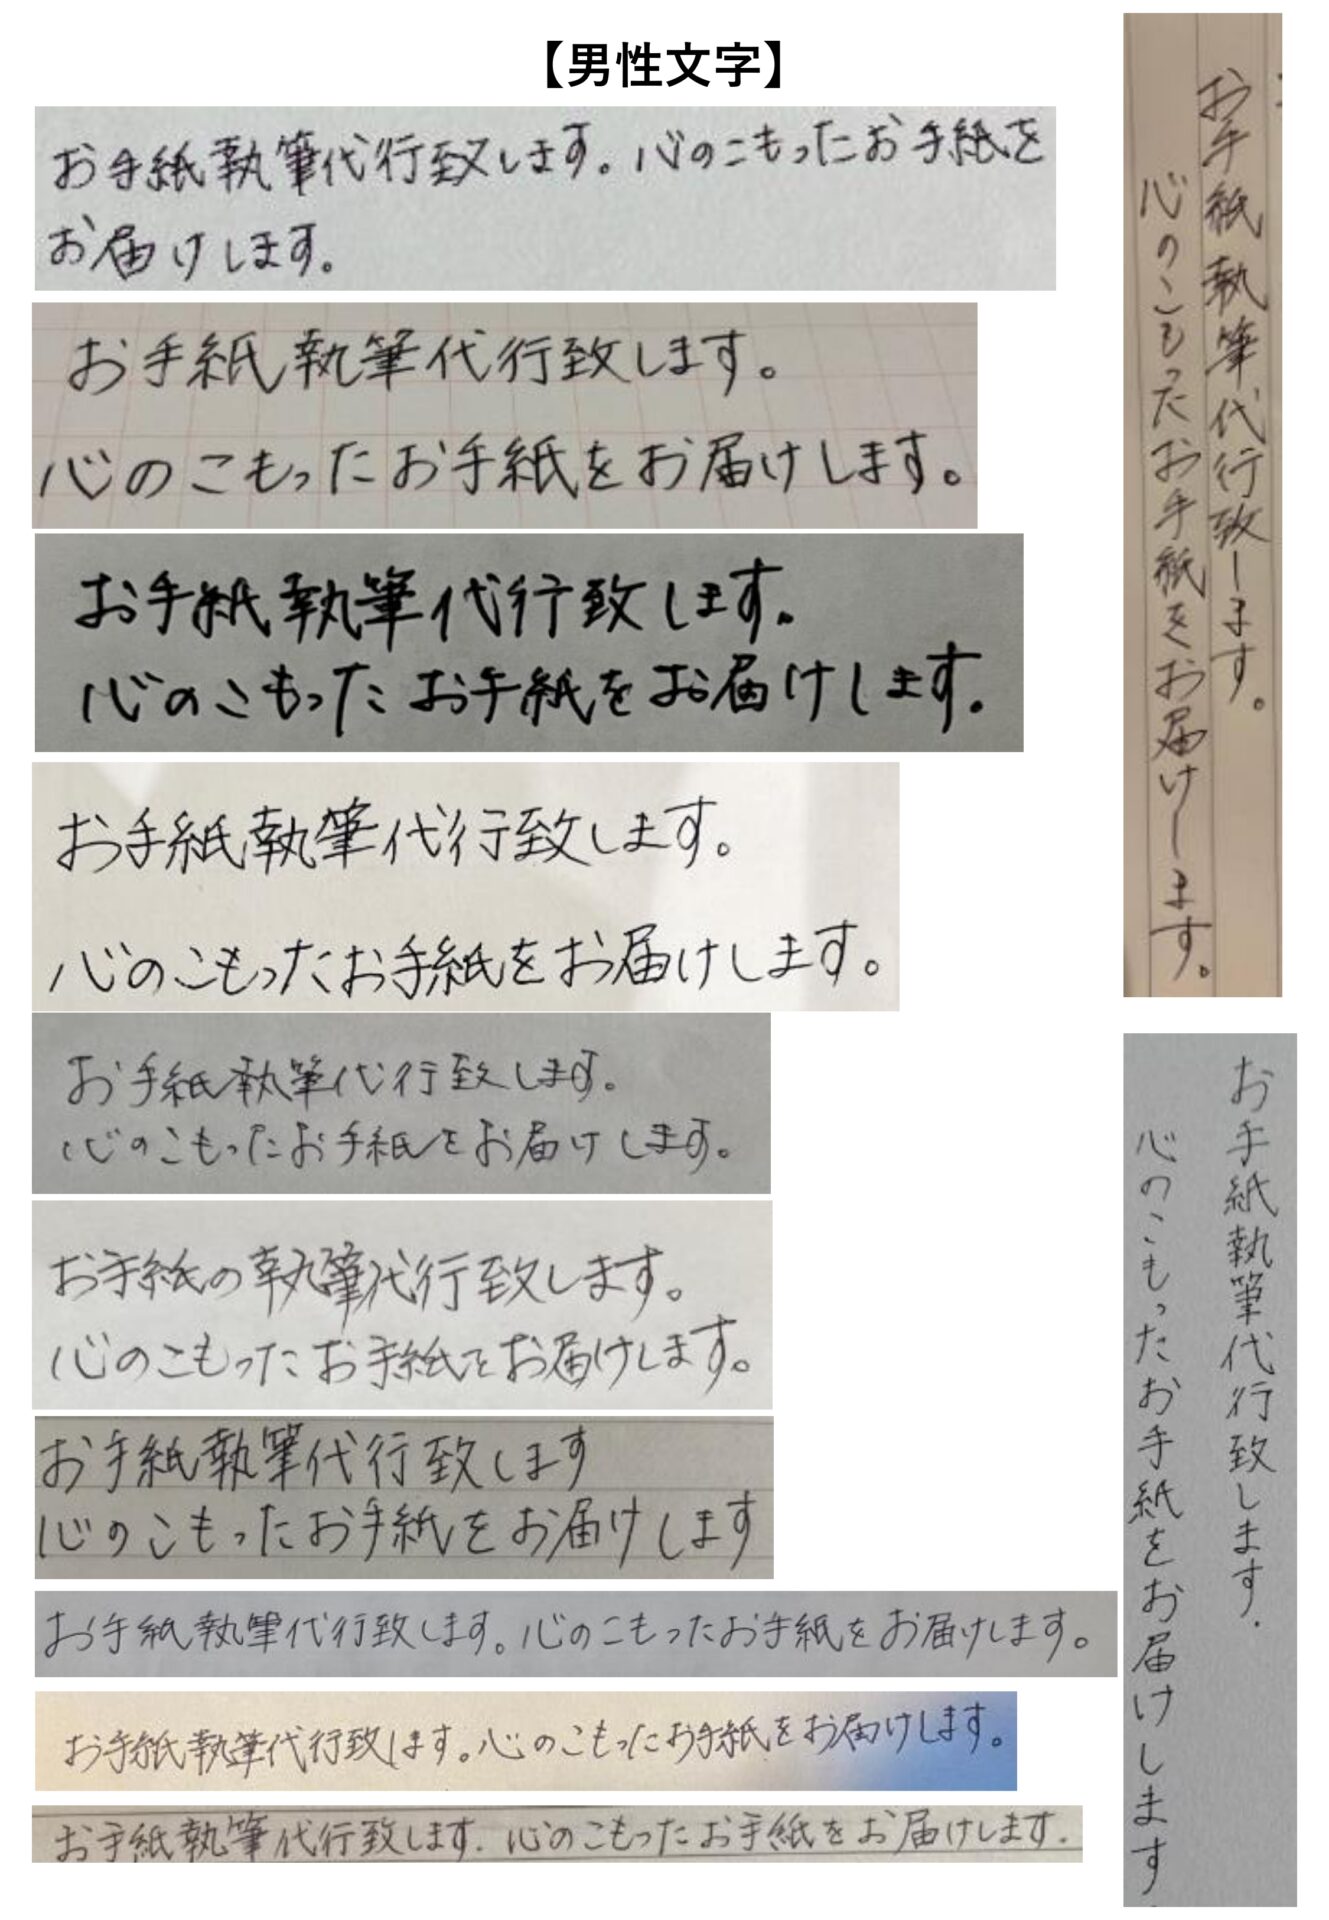 【男性文字】
お手紙執筆代行致します。心のこもったお手紙を
お届けします。
お手紙執筆代行致します。
心のこもったお手紙をお届けします。
お手紙執筆代行致します。
心のこもったお手紙をお届けします。
お手紙執筆代行致します。
心のこもったお手紙をお届けします。
お手紙執筆代行致します。
心のこもったお手紙をお届けします。
お手紙の執筆代行致します。
心のこもったお手紙をお届けします。
お手紙執筆代行致します
心のこもったお手紙をお届けします
お手紙執筆代行致します。心のこもったお手紙をお届けします。
お手紙執筆代行致します。心のこもったお手紙をお届けします。
お手紙執筆代行致します.心のこもったお手紙をお届けします.
お手紙執筆代行致します。
心のこもったお手紙をお届けします。
お手紙執筆代行致します.
心のこもったお手紙をお届けします.